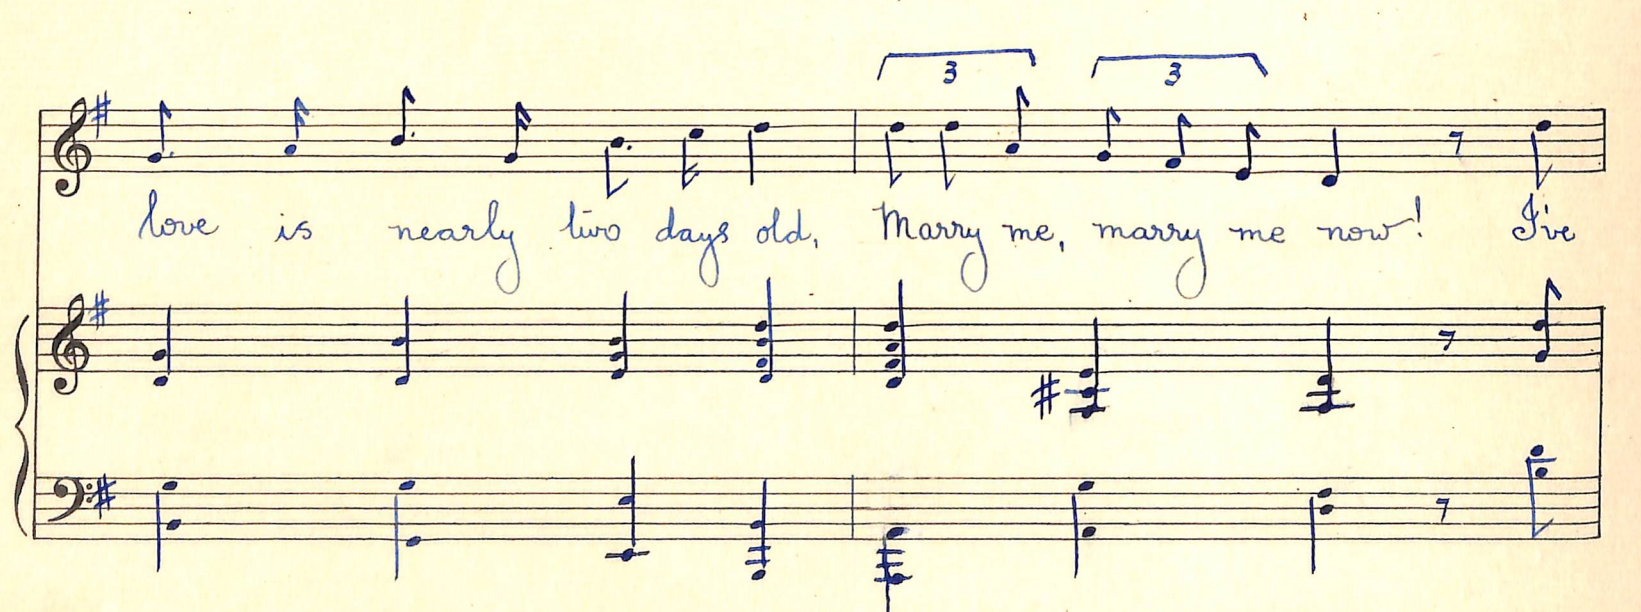 3 3
love is nearly two days old, Marry me, marry me now! I've